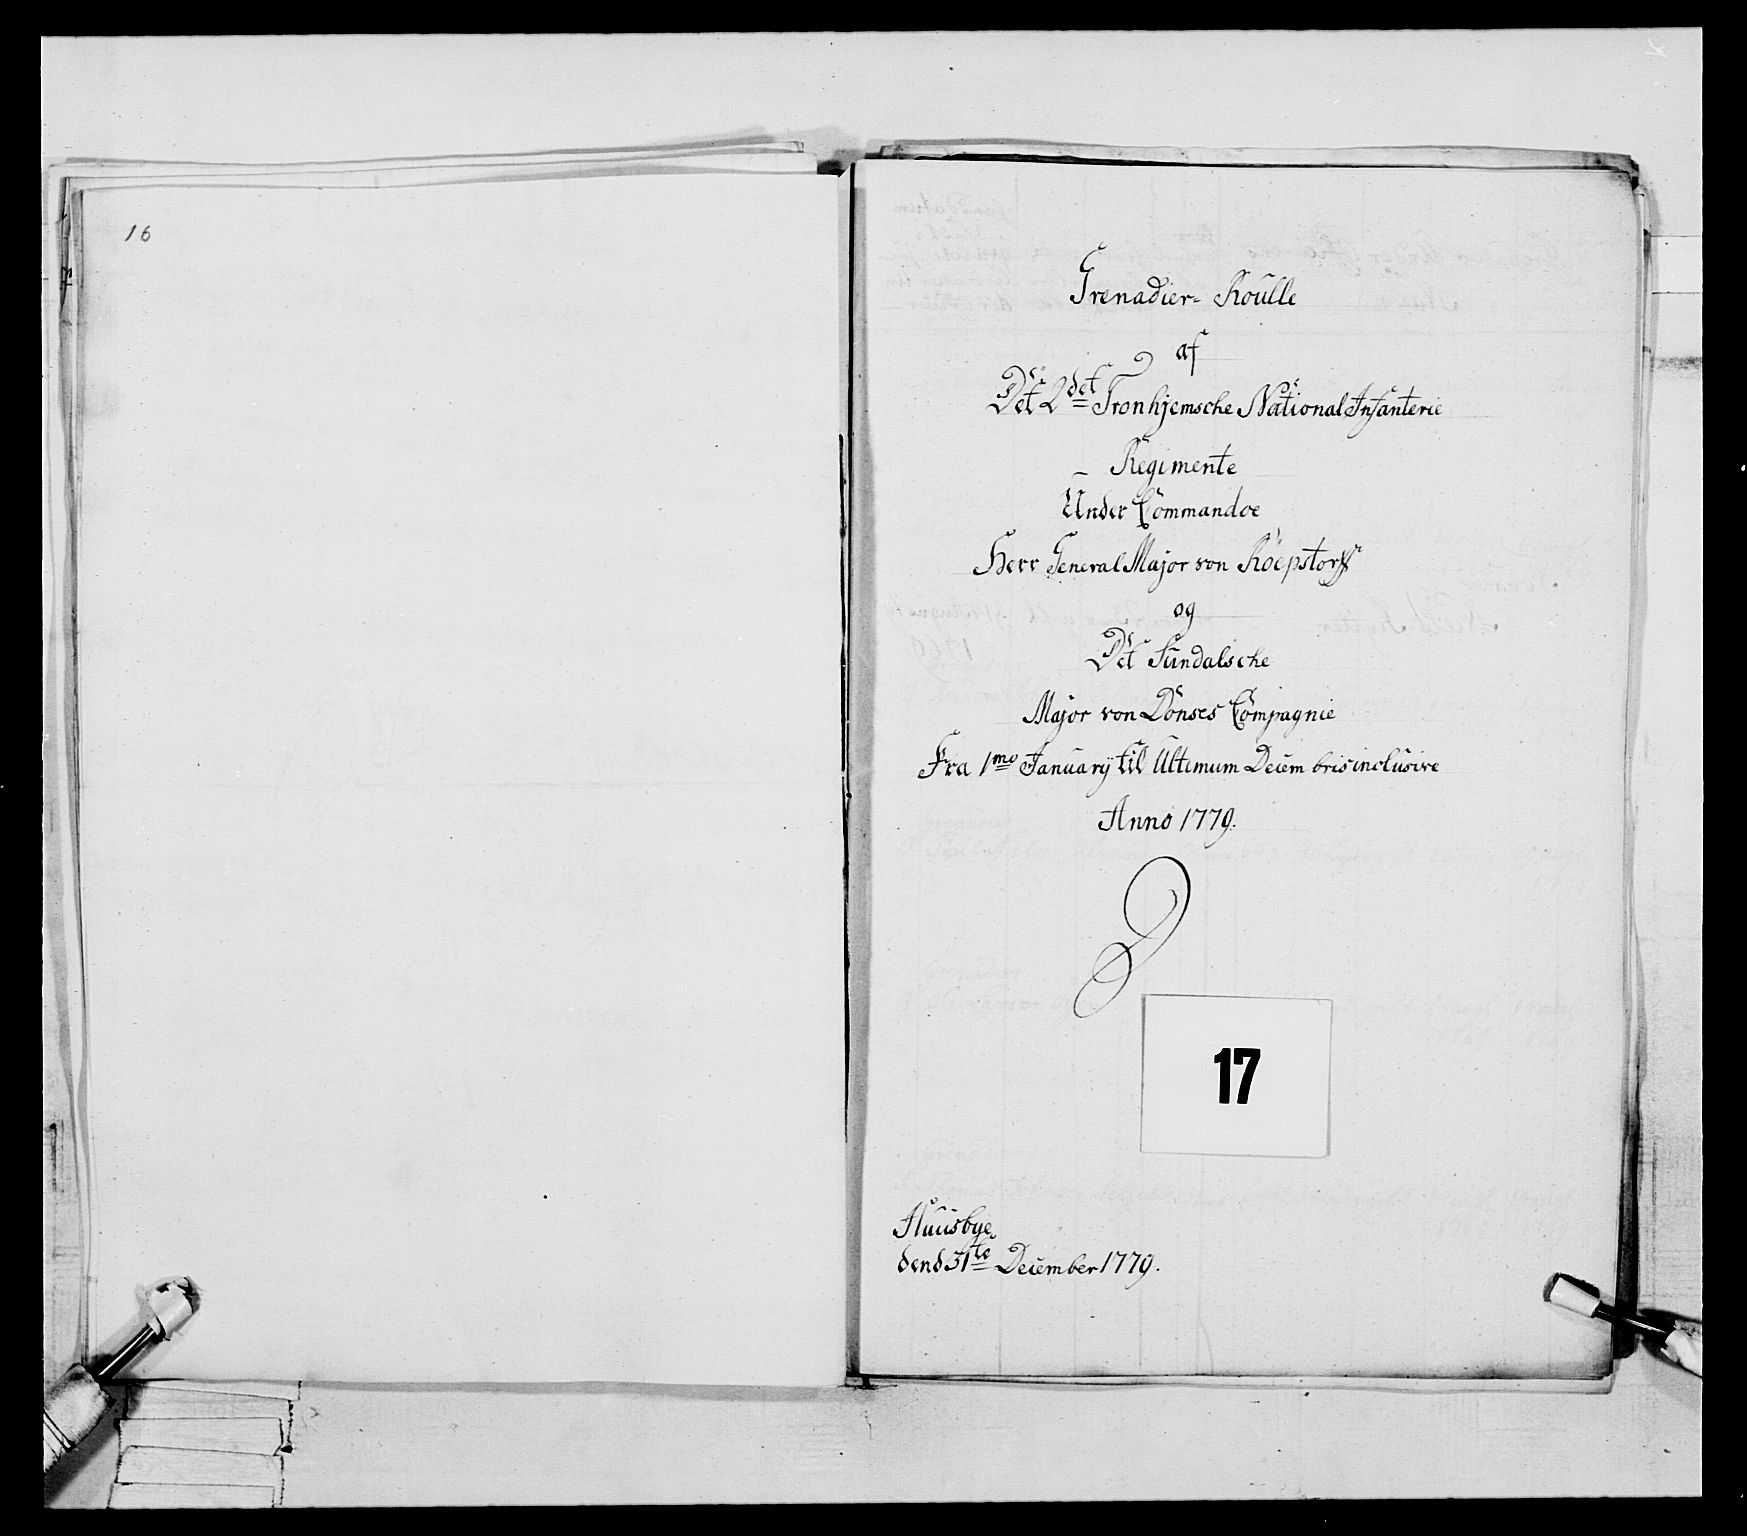 16
Grenadier= Roulle
af
Det 2det Tronhjemsche National Infanterie
Regimente
Under Commandoe
Herr General Major von Röepstorff
og
Det Sundalsche
Major von Dönses Compagnie
Fra 1mo January til Ultimum Decembris inclusive
Anno 1779.
17
Huusbye,
dend 31te December 1779.